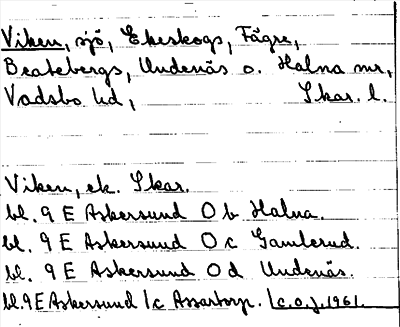 Viken, sjö, Ekeskogs, Fägre,
Beatebergs, Undenäs o. Halna snr,
Vadsbo hd, Skar. l.
Viken, ek. Skar.
bl. 9 E Askersund 0 b Halna.
bl. 9 E Askersund 0 c Gamlerud.
bl. 9 E Askersund 0 d Undenäs.
bl. 9 E Askersund 1c Assartorp. c.o.j. 1961.